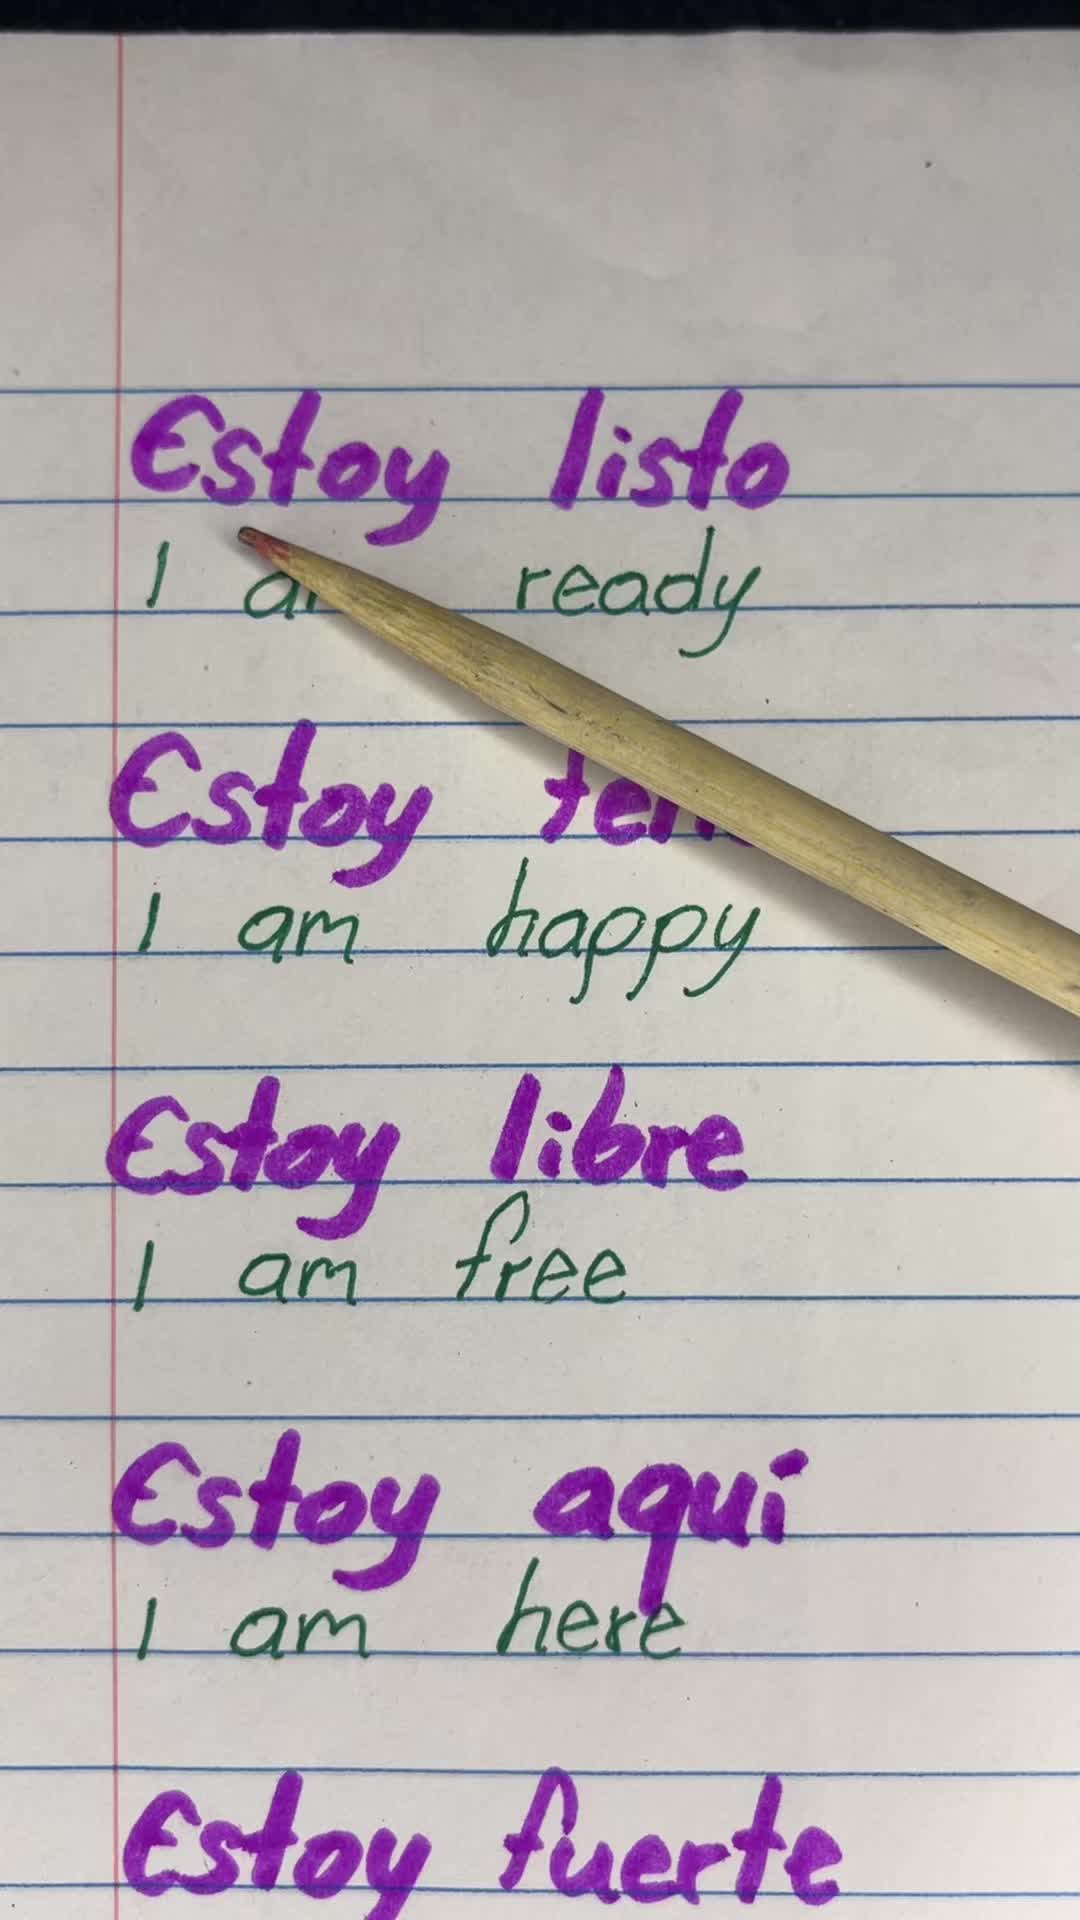 Estoy listo
I ready
Estoy
I am happy
Estoy libre
I am free
Estoy aquí
I am here
Estoy fuerte